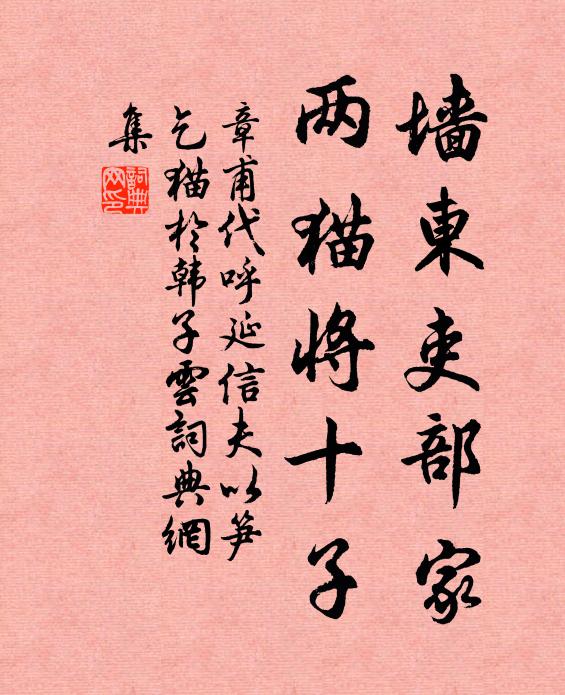 墙東吏部家
两猫將十子
章甫代呼延信夫以笋
乞猫於韩子雲詞典網
集
詞典网印